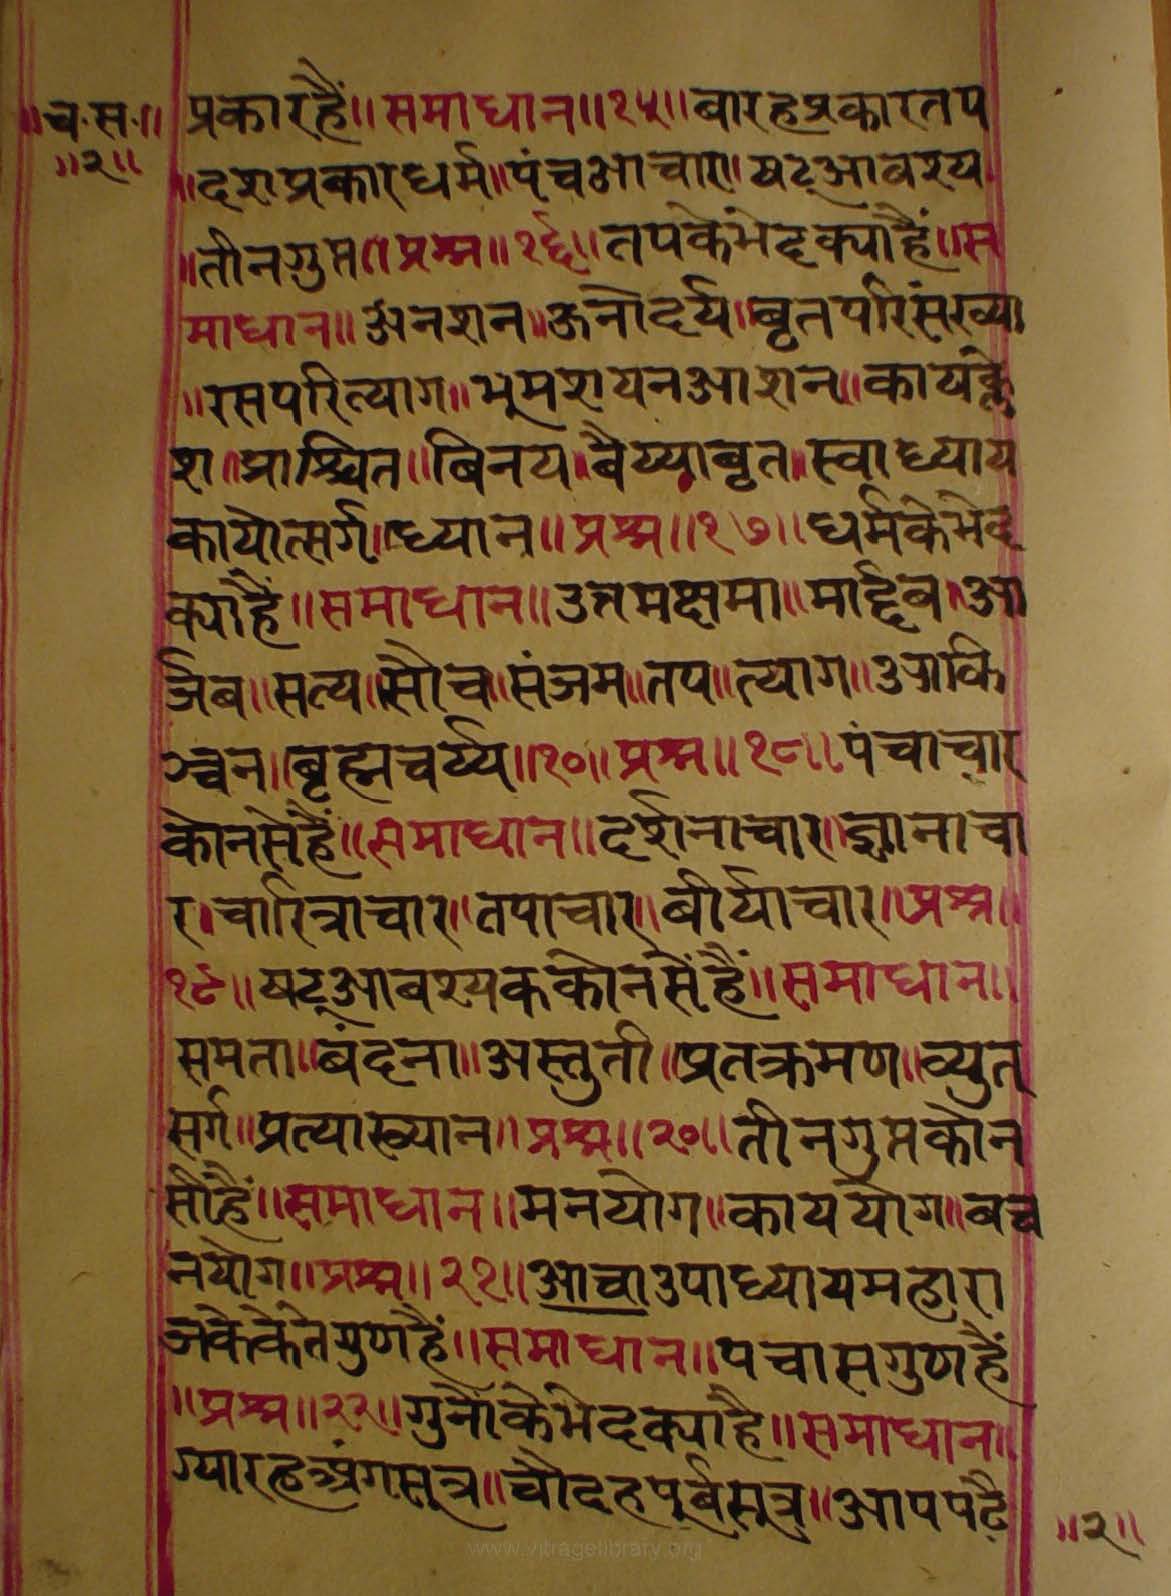 ॥च.स.॥ प्रकारहैं॥समाधान॥१५॥बारहप्रकारतप
॥२॥
॥दशप्रकारधर्म॥पंचआचार॥षट्आवश्य
॥तीनगुप्त॥प्रश्न॥१६॥तपकेभेदक्याहैं॥स
माधान॥अनशन॥ऊनोदर्य॥बृतपरिसंख्या
॥रसपरित्याग॥भूमशयनआशन॥कायक्ले
श॥प्राश्चित॥बिनय॥बैय्याबृत॥स्वाध्याय
कायोत्सर्ग॥ध्यान॥प्रश्न॥१७॥धर्मकेभेद
क्याहैं॥समाधान॥उत्तमक्षमा॥मार्द्दब॥आ
र्जब॥सत्य॥सौच॥संजम॥तप॥त्याग॥आकि
ञ्चन॥बृह्मचर्य्य॥१०॥प्रश्न॥१८॥पंचाचार
कोनसेहैं॥समाधान॥दर्शनाचार॥ज्ञानाचा
र॥चारित्राचार॥तपाचार॥बीर्याचार॥प्रश्न॥
१९॥षट्आबश्यककोनसेंहैं॥समाधान॥
समता॥बंदना॥अस्तुती॥प्रतक्रमण॥व्युत्
सर्ग॥प्रत्याख्यान॥प्रश्न॥२०॥तीनगुप्तकोन
सीहैं॥समाधान॥मनयोग॥काययोग॥बच
नयोग॥प्रश्न॥२१॥आचाउपाध्यायमहारा
जकेकेतेगुणहैं॥समाधान॥पचासगुणहैं
॥प्रश्न॥२२॥गुनोंकेभेदक्याहै॥समाधान॥
ग्यारहअंगसूत्र॥चौदहपूर्बसूत्र॥आपपढै
॥२॥
www.vitragelibrary.org